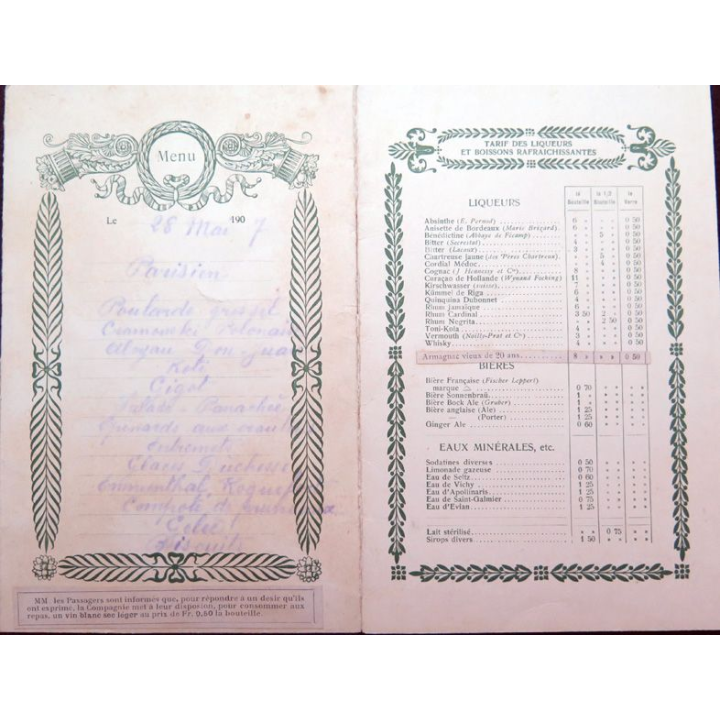 Menu
Le 28 Mai 1907
Parisien
Poularde
Cromouski Polonais
Aloyau Don Juan
Roti
Gigot
Salade Panachée
Epinards aux
entremets
Duchesse
Emmenthal
Compote de
Café
Biscuits
MM. les Passagers sont informés que, pour répondre à un désir qu'ils
ont exprimé, la Compagnie met à leur disposition, pour consommer aux
repas, un vin blanc sec léger au prix de Fr. 0,50 la bouteille.
TARIF DES LIQUEURS
ET BOISSONS RAFRAICHISSANTES
LIQUEURS la Bouteille la 1/2 Bouteille le Verre
Absinthe (E. Pernod) 6 » » 0 50
Anisette de Bordeaux (Marie Brizard) 6 » » 0 50
Bénédictine (Abbaye de Fécamp) » 5 » 0 50
Bitter (Secrestat) 4 » » 0 50
Bitter (Lacaux) 3 » » 0 50
Chartreuse jaune (des Pères Chartreux) » 5 » 0 50
Cordial Médoc » 4 » 0 50
Cognac (J. Hennessy et Cie) 8 » » 0 50
Curaçao de Hollande (Wynand Focking) 11 » » 0 50
Kirschwasser (suisse) 7 » » 0 50
Kümmel de Riga 6 » » 0 50
Quinquina Dubonnet 4 » » 0 50
Rhum Jamaïque 6 » » 0 50
Rhum Cardinal 3 50 2 » 0 50
Rhum Negrita » 2 50 0 50
Toni-Kola 4 » » 0 50
Vermouth (Noilly-Prat et Cie) 3 » » 0 50
Whisky 4 » » 0 50
Armagnac vieux de 20 ans 8 » » » 0 50
BIÈRES
Bière Française (Fischer Leppert)
marque 0 70 » » » »
Bière Sonnenbraü 1 » » » » »
Bière Bock Ale (Gruber) 1 » » » » »
Bière anglaise (Ale) 1 25 » » » »
— (Porter) 1 25 » » » »
Ginger Ale 0 60 » » » »
EAUX MINÉRALES, etc.
Sodatines diverses 0 50 » » » »
Limonade gazeuse 0 70 » » » »
Eau de Seltz 0 60 » » » »
Eau de Vichy 1 25 » » » »
Eau d'Apollinaris 1 25 » » » »
Eau de Saint-Galmier 0 70 » » » »
Eau d'Evian 1 25 » » » »
Lait stérilisé » » 0 75 » »
Sirops divers 1 50 » » » »